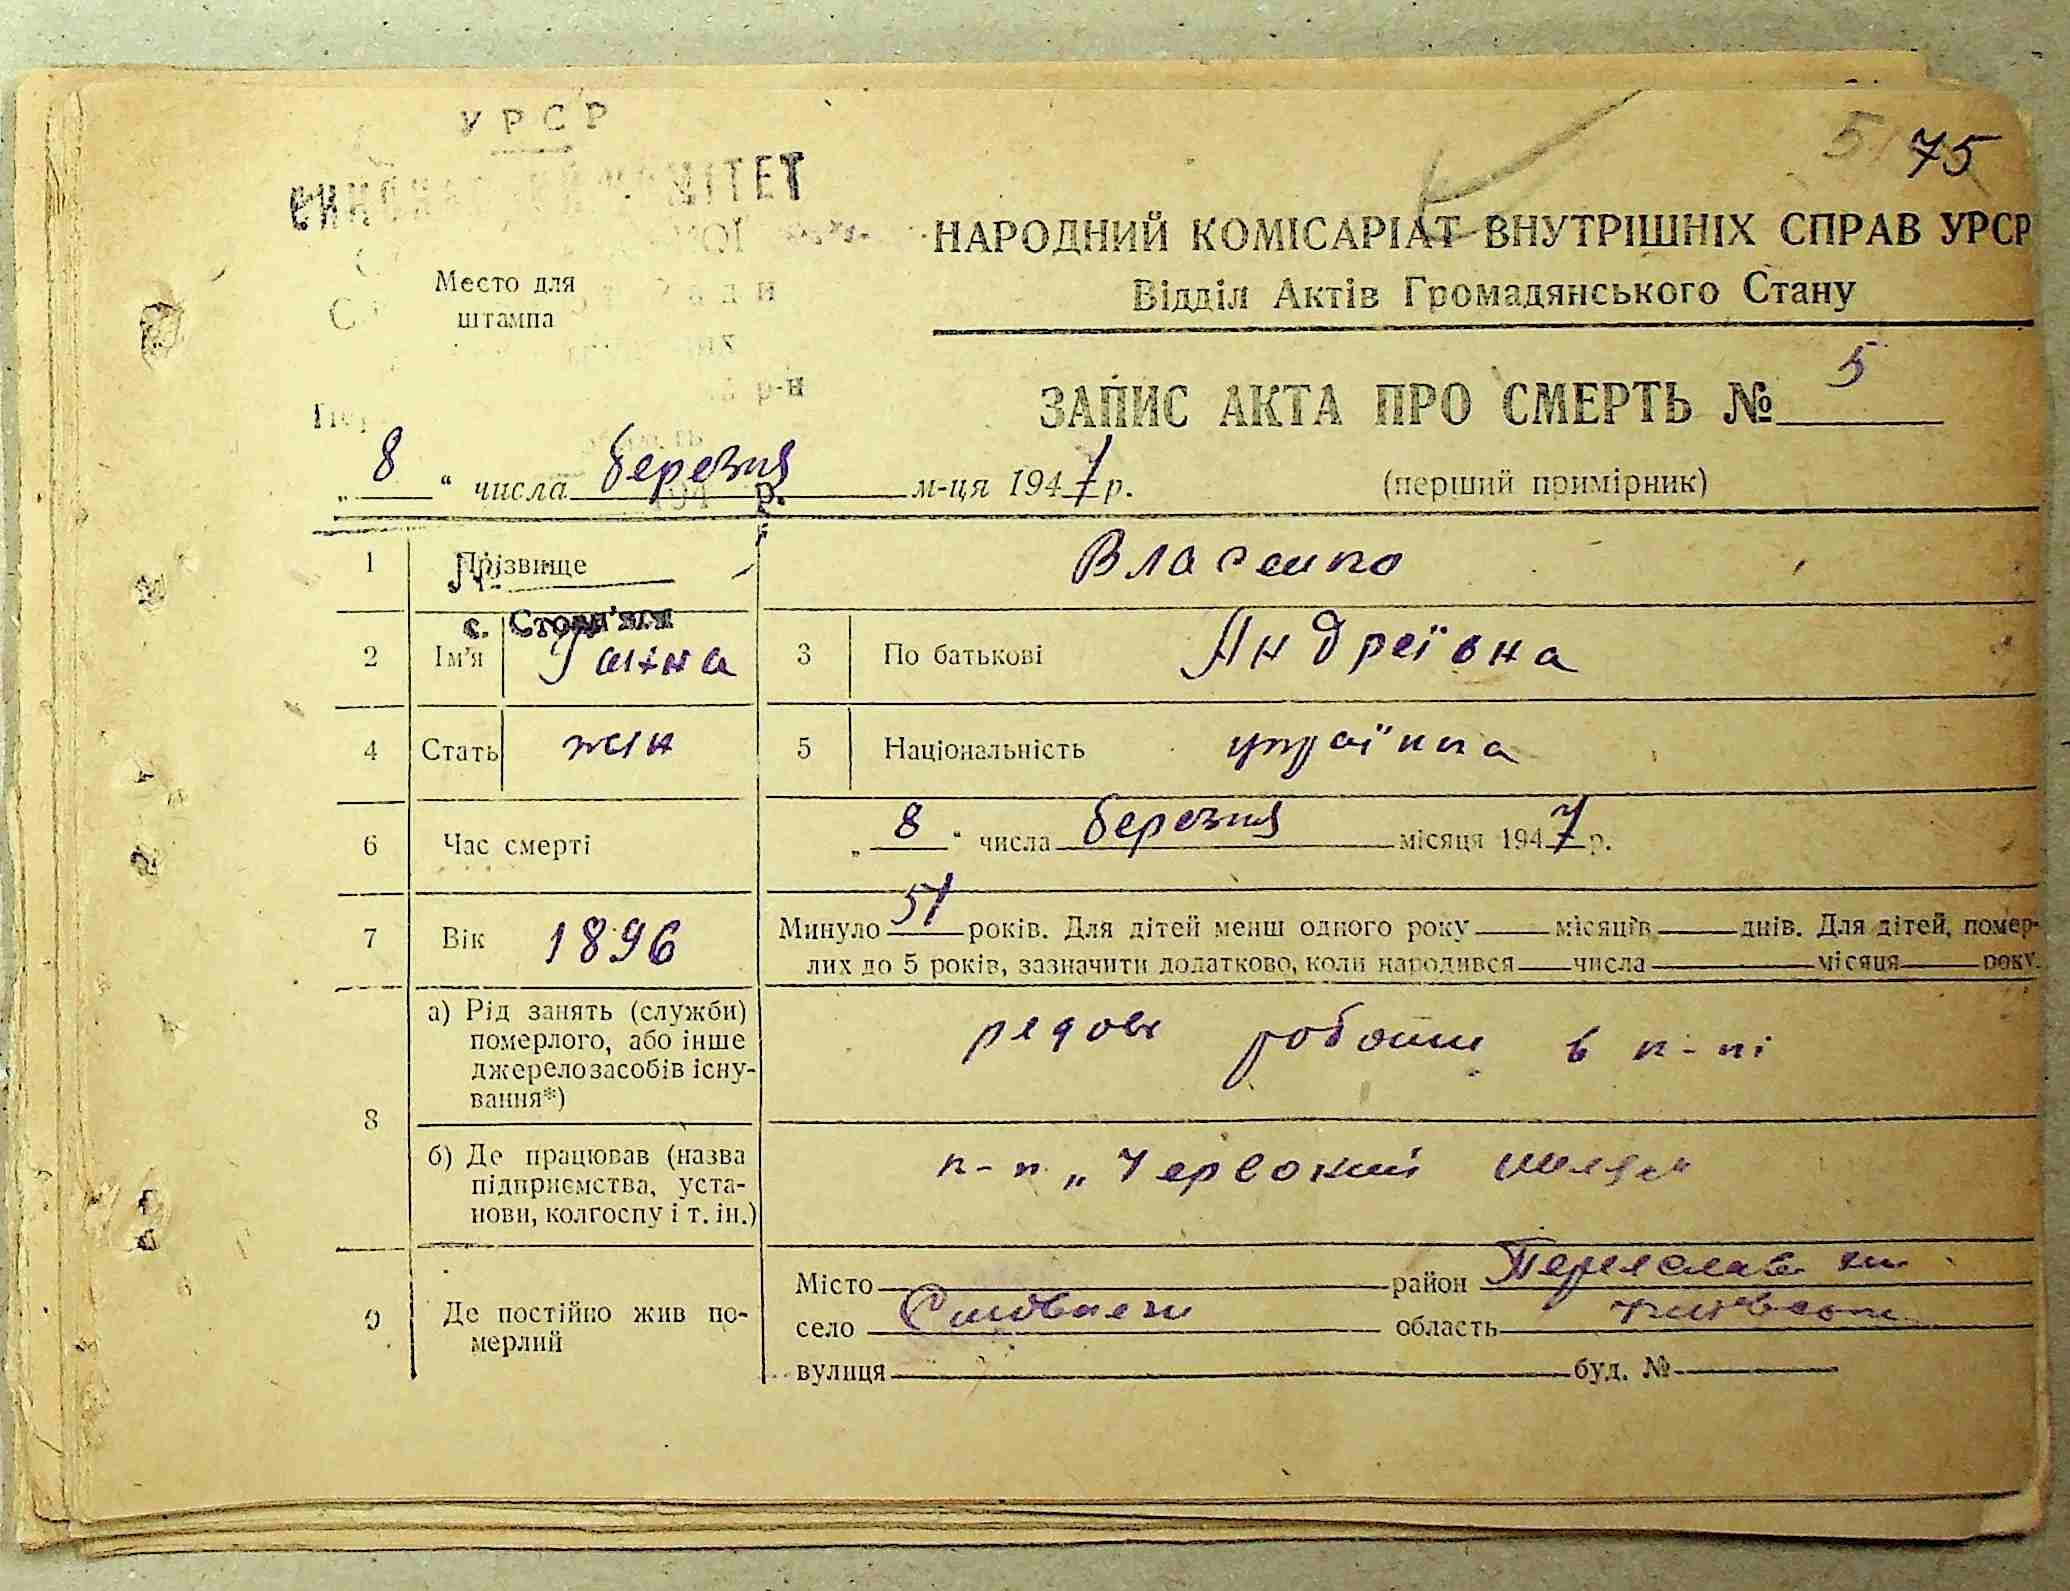 УРСР
ВИКОНАВЧИЙ КОМІТЕТ
75
НАРОДНИЙ КОМІСАРІАТ ВНУТРІШНІХ СПРАВ УРСР
Відділ Актів Громадянського Стану
Место для
штампа
р-н
ЗАПИС АКТА ПРО СМЕРТЬ № 5
„ 8 “ числа березня м-ця 1947 р.
(перший примірник)
194 р.
1 Прізвище Власенко
№
с. Стовп'яги
2 Ім'я Ганна 3 По батькові Андреївна
4 Стать жін 5 Національність українка
6 Час смерті „ 8 “ числа березня місяця 1947 р.
7 Вік 1896 Минуло 51 років. Для дітей менш одного року місяців днів. Для дітей, помер-
лих до 5 років, зазначити додатково, коли народився числа місяця року.
8 а) Рід занять (служби)
померлого, або інше
джерело засобів існу-
вання*)
рядові роботи в к-пі
б) Де працював (назва
підприємства, уста-
нови, колгоспу і т. ін.)
к-п „Червоний шлях"
9 Де постійно жив по-
мерлий
Місто район Переяслав хм
село Стовпяги область київська
вулиця буд. №